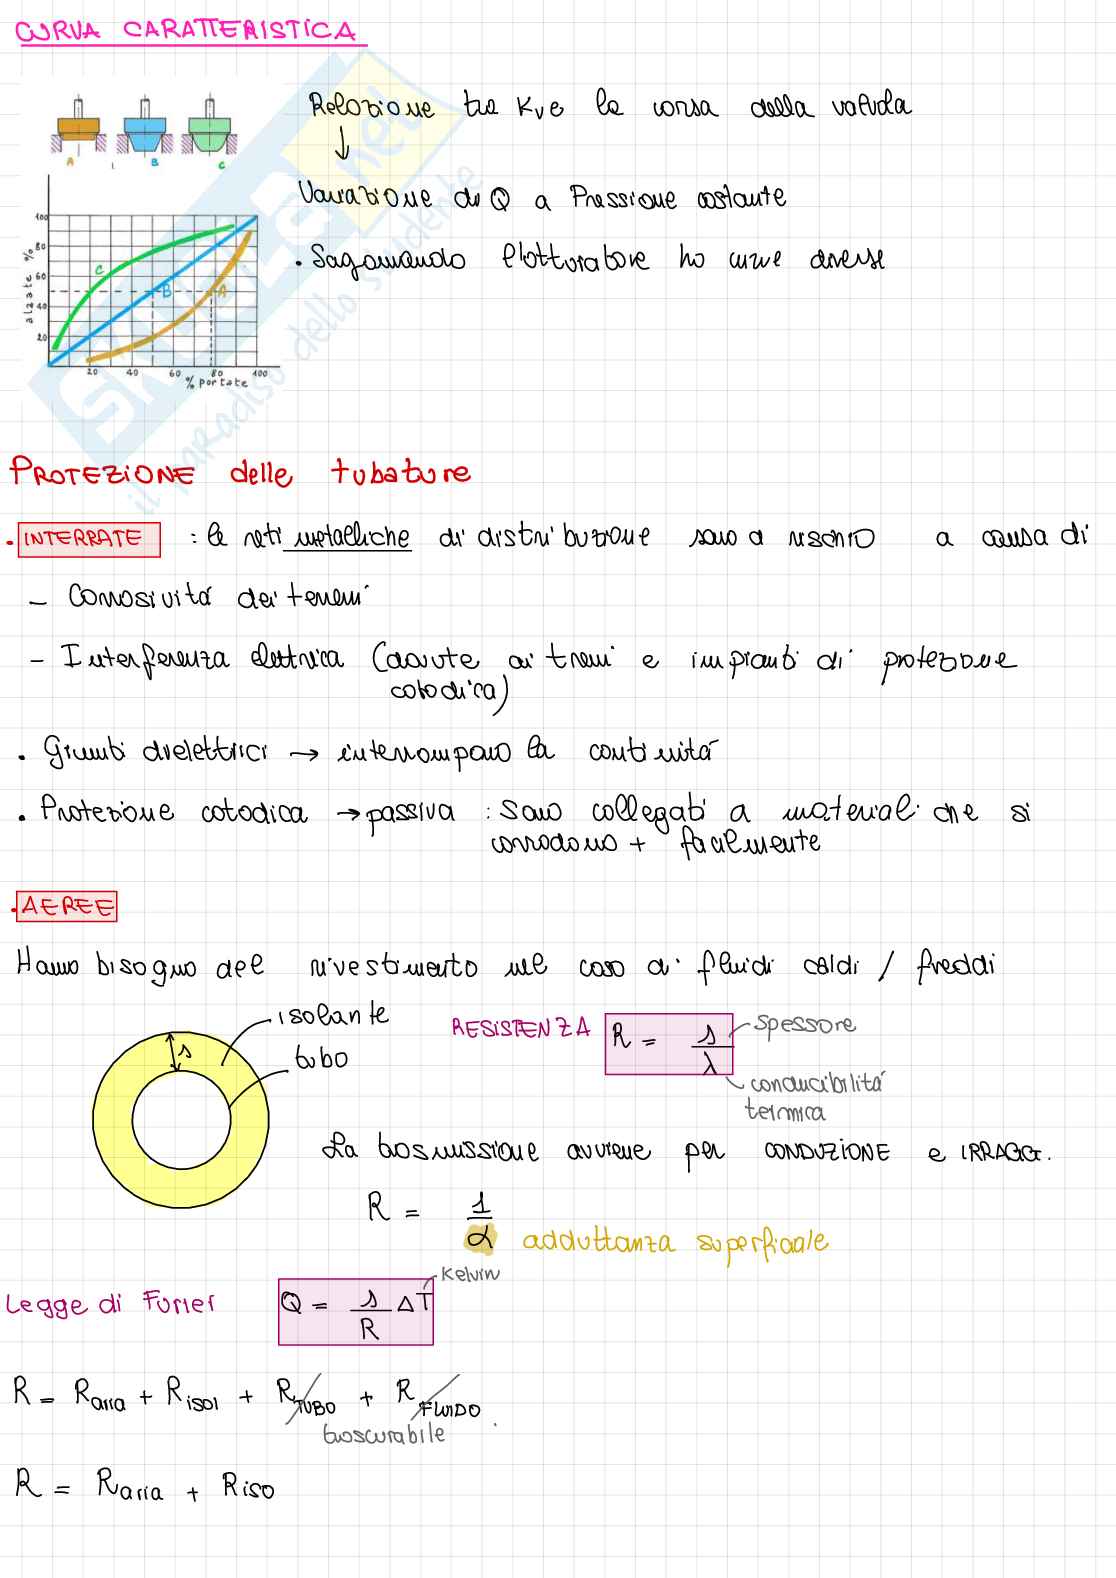 CURVA CARATTERISTICA
Relazione tra Kv e la corsa della valvola
↓
Variazione di Q a Pressione costante
• Sagomando l'otturatore ho curve diverse
A B C
alzate %
100
80
60
40
20
C B A
20 40 60 80 100
% portate
PROTEZIONE delle tubature
• INTERRATE : le reti metalliche di distribuzione sono a rischio a causa di
- Corrosività dei terreni
- Interferenza elettrica (dovute ai treni e impianti di protezione
catodica)
• Giunti dielettrici → interrompono la continuità
• Protezione catodica → passiva : sono collegati a materiali che si
corrodono + facilmente
• AEREE
Hanno bisogno del rivestimento nel caso di fluidi caldi / freddi
isolante
tubo
s
RESISTENZA R = s/λ
spessore
conducibilità
termica
La trasmissione avviene per CONDUZIONE e IRRAGG.
R = 1/α adduttanza superficiale
Legge di Furier Q = s/R ΔT
Kelvin
R = Raria + Risol + RTUBO + RFLUIDO
trascurabile
R = Raria + Riso
SKUOLA.net
il paradiso dello studente